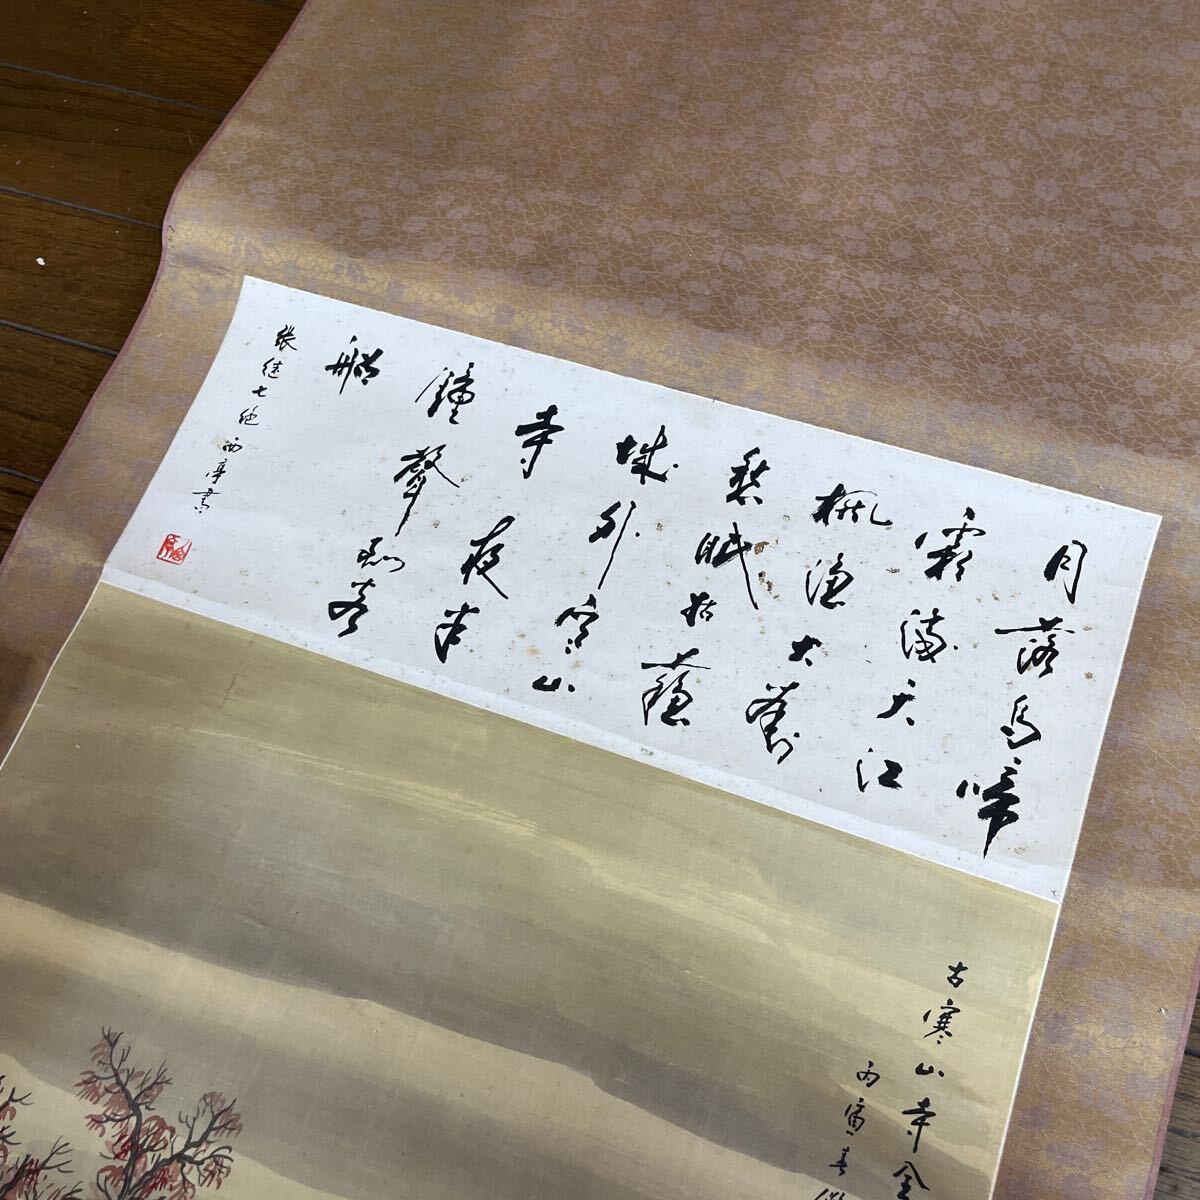 月落烏啼
霜満天江
楓漁火對
愁眠姑蘇
城外寒山
寺夜半
鐘聲到客
船
張継七絶 西亭書
古寒山寺全
丙寅春